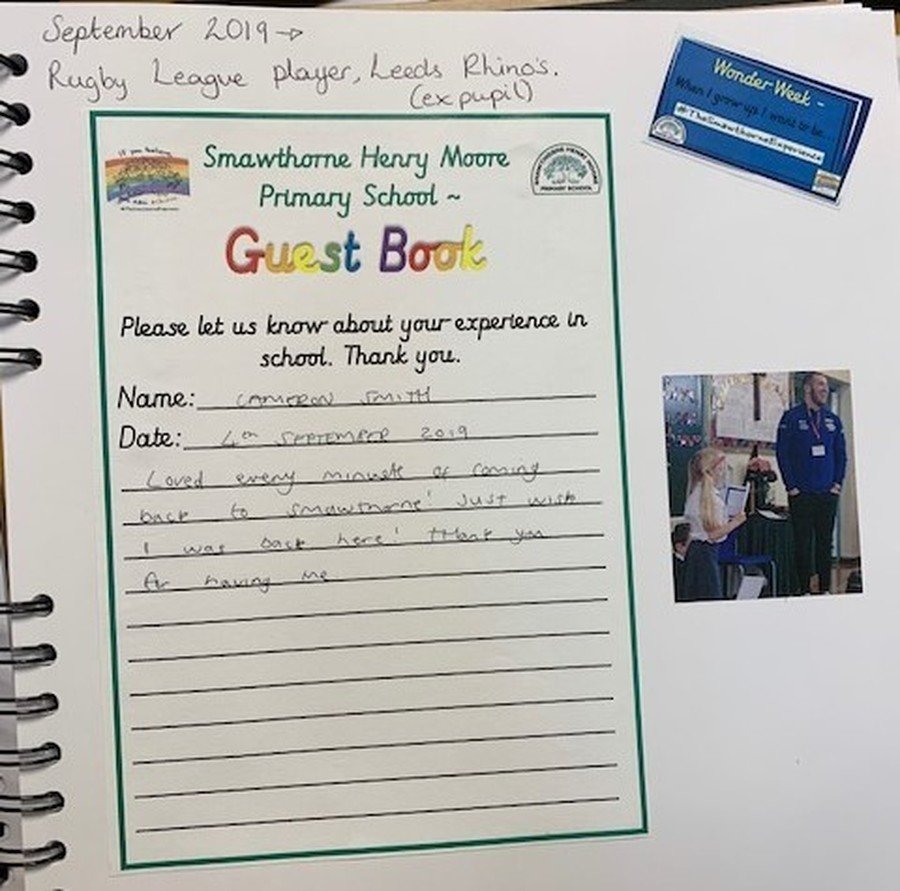 September 2019 →
Rugby League player, Leeds Rhino's.
(ex pupil)
Wonder Week -
When I grow up I want to be...
#TheSmawthorneExperience
If you believe
Smawthorne Henry Moore
Primary School ~
SMAWTHORNE HENRY MOORE
PRIMARY SCHOOL
Guest Book
Please let us know about your experience in
school. Thank you.
Name: CAMERON SMITH
Date: 4th SEPTEMBER 2019
Loved every minute of coming
back to Smawthorne! Just wish
I was back here! Thank you
for having me